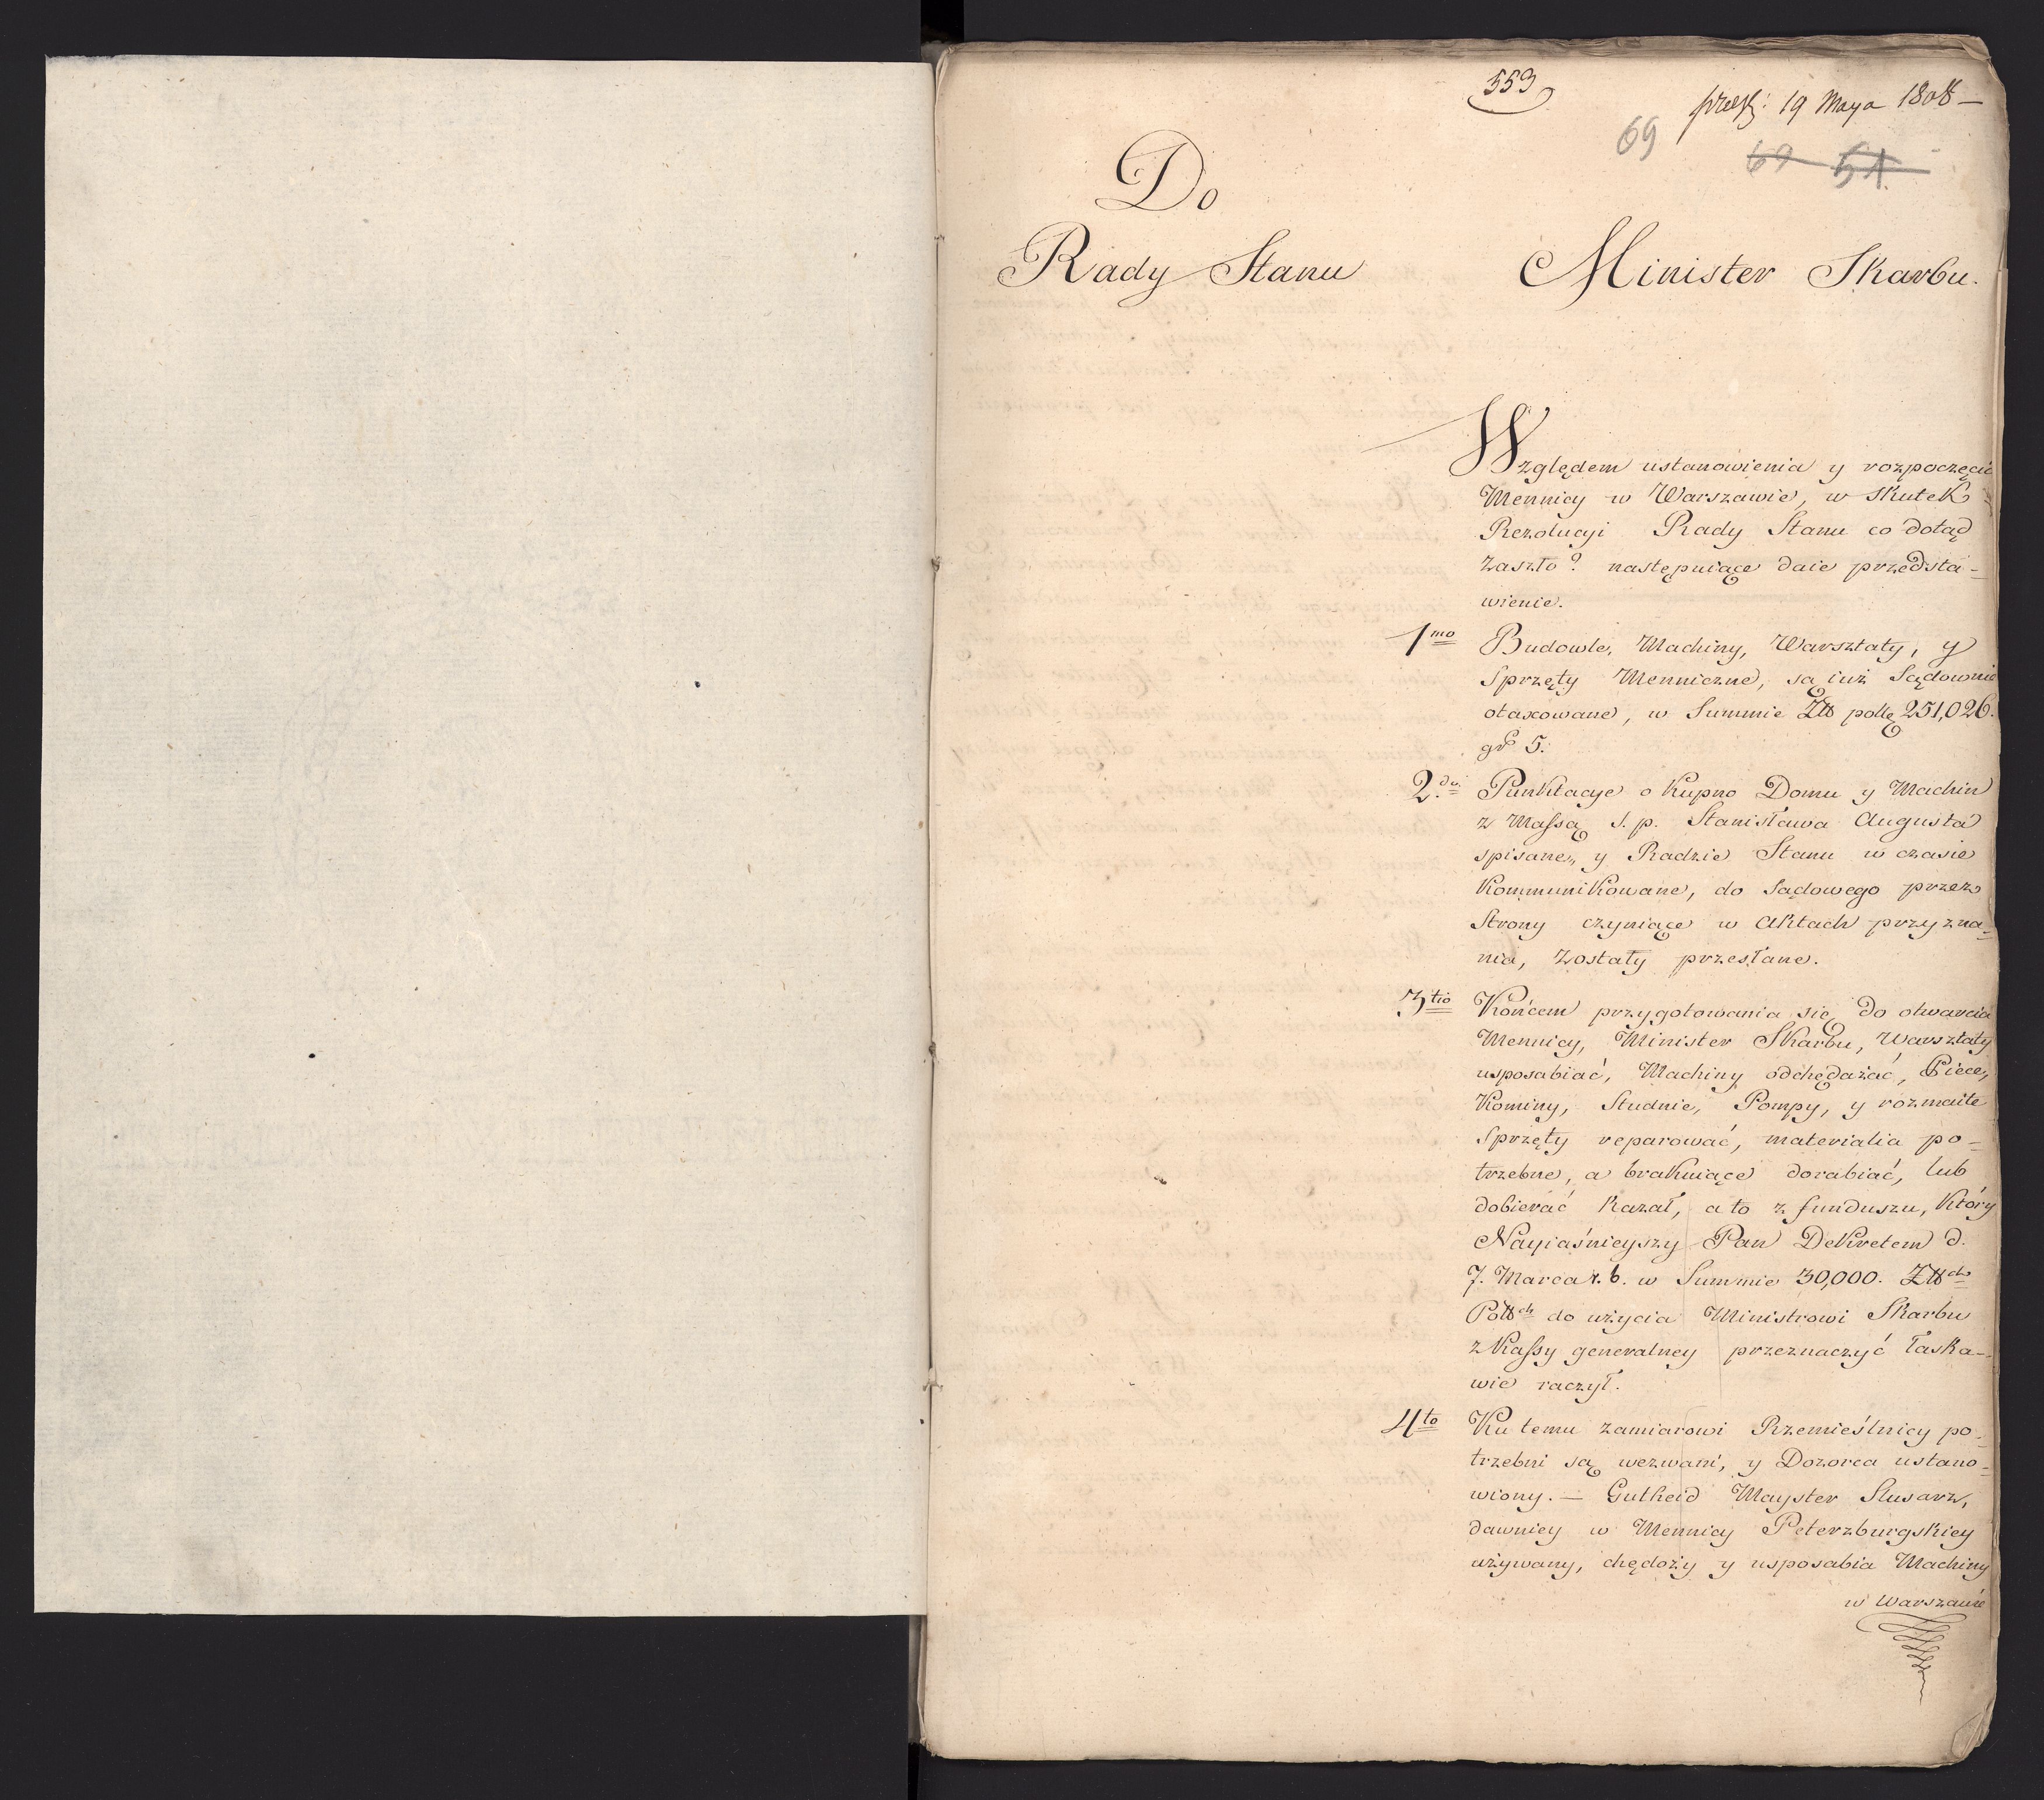 553
19 Maya 1808 —
69
69 51
Do
Rady Stanu
Minister Skarbu.
Względem ustanowienia y rozpoczęcia
Mennicy w Warszawie, w skutek
Rezolucyi Rady Stanu co dotąd
zaszło? następuiące daie przedsta-
wienie.
1mo Budowle, Machiny, Warsztaty, y
Sprzęty Menniczne, są iuż Sądownie
otaxowane, w Summie Złł polłę 251,026.
gr 5.
2do Punktacye o Kupno Domu y Machin
z Massą s. p. Stanisława Augusta
spisane, y Radzie Stanu w czasie
Kommunikowane, do Sądowego przez
Strony czyniące w Aktach przyzna-
nia, zostały przesłane.
3tio Końcem przygotowania się do otwarcia
Mennicy, Minister Skarbu, Warsztaty
usposabiać, Machiny odchędażać, Piece,
Kominy, Studnie, Pompy, y rozmaite
Sprzęty reparować, materialia po-
trzebne, a brakuiące dorabiać, lub
dobierać kazał, a to z funduszu, Który
Nayiaśnieyszy Pan Dekretem d.
7. Marca r. b. w Summie 30,000. Złłch
Polłch do użycia Ministrowi Skarbu
z Kassy generalney przeznaczyć łaska-
wie raczył.
4to Ku temu zamiarowi Rzemieślnicy po-
trzebni są wezwani, y Dozorca ustano-
wiony. — Gutheid Mayster Slusarz,
dawniey w Mennicy Peterzburgskiey
używany, chędoży y usposabia Machiny
w Warszawie